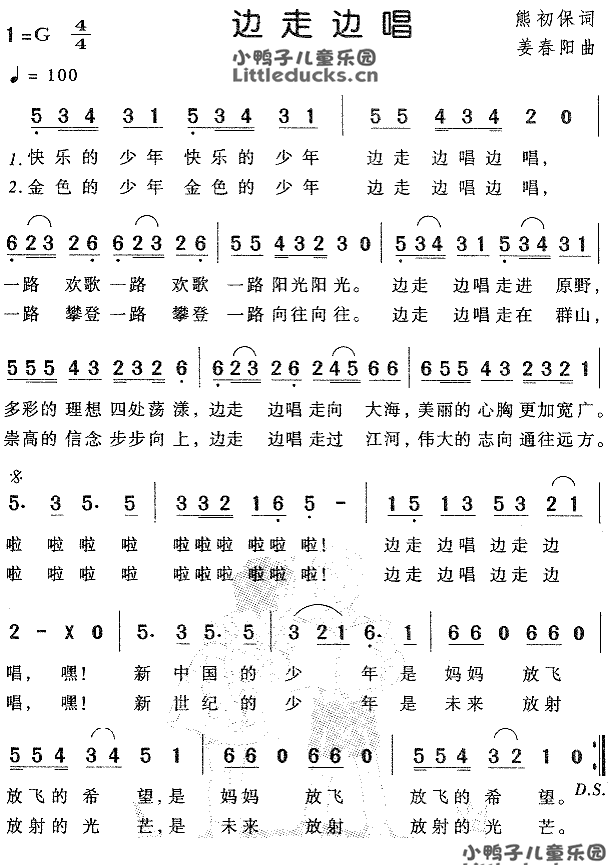 边走边唱
熊初保词
1=G 4/4
姜春阳曲
♩= 100
小鸭子儿童乐园
Littleducks.cn
5 3 4 3 1 5 3 4 3 1 | 5 5 4 3 4 2 0
1.快乐的 少年 快乐的 少年 边走 边唱边 唱,
2.金色的 少年 金色的 少年 边走 边唱边 唱,
6 2 3 2 6 6 2 3 2 6 | 5 5 4 3 2 3 0 | 5 3 4 3 1 5 3 4 3 1
一路 欢歌 一路 欢歌 一路 阳光阳光。 边走 边唱走进 原野,
一路 攀登 一路 攀登 一路 向往向往。 边走 边唱走在 群山,
5 5 5 4 3 2 3 2 6 | 6 2 3 2 6 2 4 5 6 6 | 6 5 5 4 3 2 3 2 1
多彩的 理想 四处荡漾, 边走 边唱 走向 大海, 美丽的 心胸 更加宽广。
崇高的 信念 步步向上, 边走 边唱 走过 江河, 伟大的 志向 通往远方。
5. 3 5. 5 | 3 3 2 1 6 5 - | 1 5 1 3 5 3 2 1
啦 啦 啦 啦 啦啦啦 啦啦 啦! 边走 边唱 边走 边
啦 啦 啦 啦 啦啦啦 啦啦 啦! 边走 边唱 边走 边
2 - X 0 | 5. 3 5. 5 | 3 2 1 6. 1 | 6 6 0 6 6 0
唱, 嘿! 新 中 国 的 少 年 是 妈妈 放飞
唱, 嘿! 新 世 纪 的 少 年 是 未来 放射
5 5 4 3 4 5 1 | 6 6 0 6 6 0 | 5 5 4 3 2 1 0 :||
D.S.
放飞的 希 望,是 妈妈 放飞 放飞的 希 望。
放射的 光 芒,是 未来 放射 放射的 光 芒。
小鸭子儿童乐园